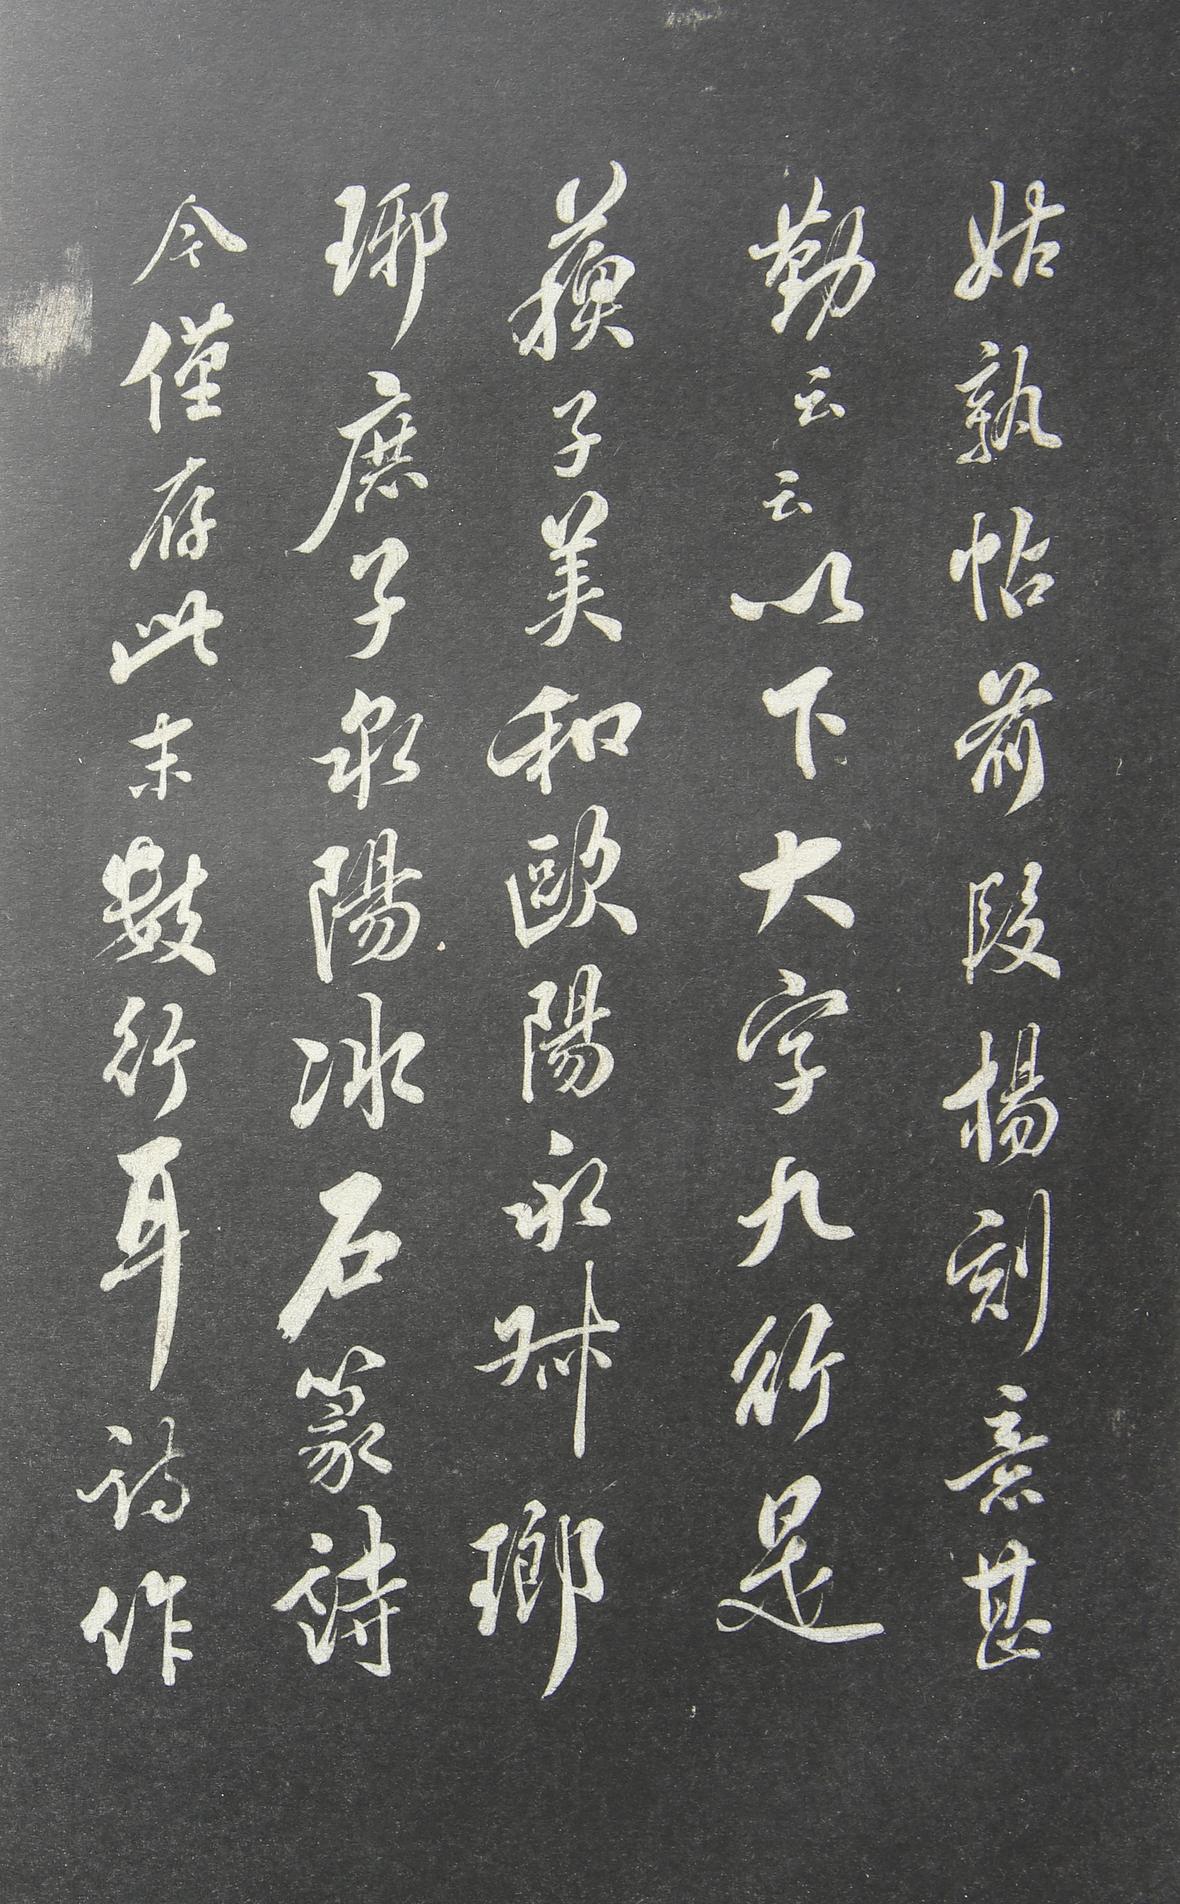 姑孰帖前段楊刻意甚
勤云云以下大字九行是
蘇子美和歐陽永叔瑯
琊庶子泉陽冰石篆詩
今僅存此末數行耳詩作